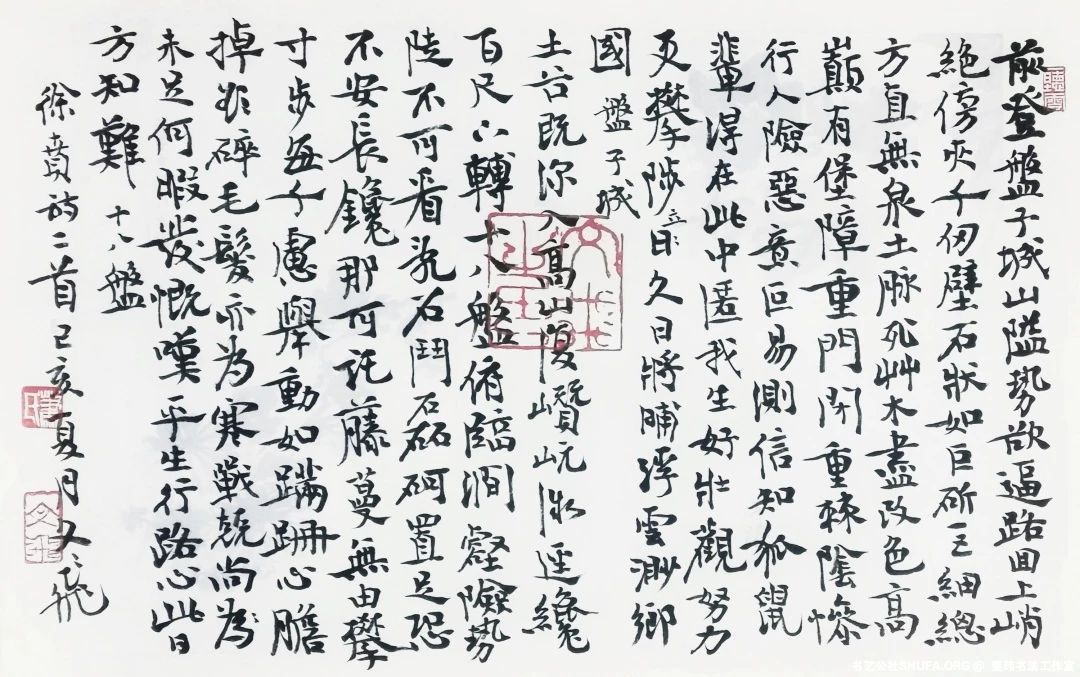 前登盤子城山隘勢欲逼路回上峭
絕傍夾千仞壁石狀如巨斫王細總
方直無泉土脉死艸木盡改色高
巔有堡障重門閉重棘陰慘
行人險惡意叵易測信知狐鼠
輩得在此中匿我生好壯觀努力
更攀陟立久日將晡浮雲渺鄉
國 盤子城
土谷既深入高山復巑岏
百尺六轉十八盤俯臨澗壑險勢
陡不可看亂石鬥砢置足恐
不安長鑱那可託藤蔓無由攀
寸步每千慮舉動如蹣跚心膽
掉欲碎毛髮亦為寒戰兢尚為
未足何暇發慨嘆平生行路心此日
方知難 十八盤
徐賁詩二首己亥夏月文飛
书艺公社SHUFA.ORG@